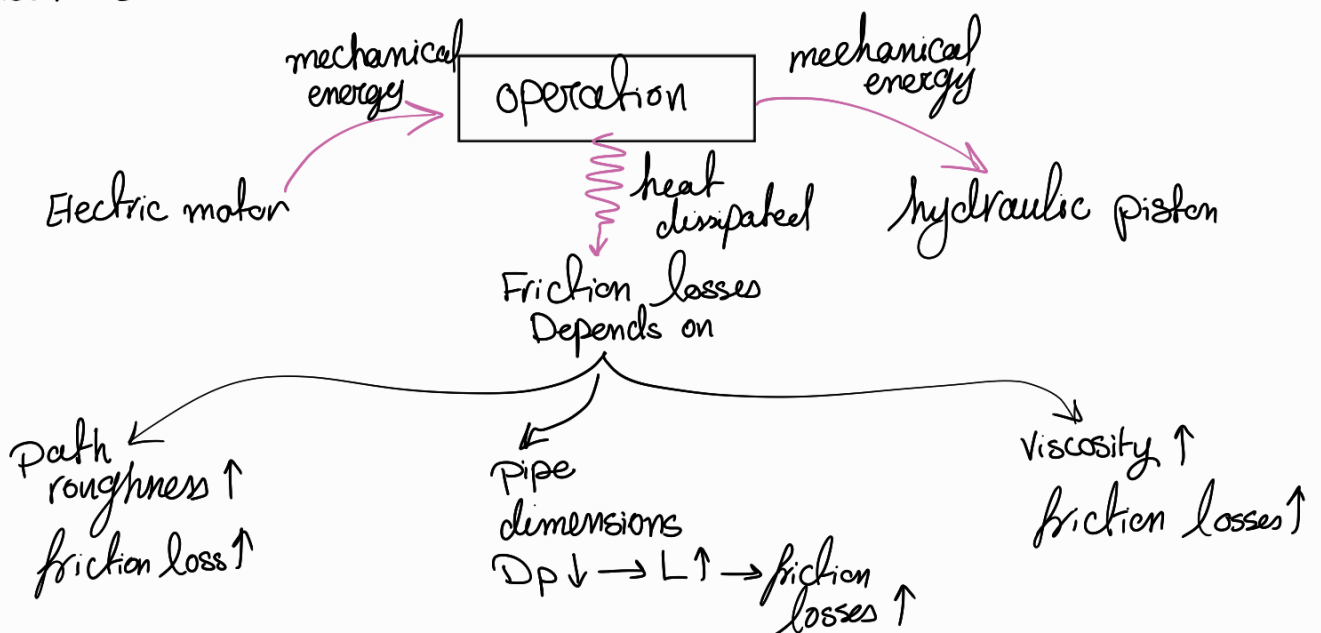 mechanical
energy
operation
mechanical
energy
Electric motor
heat
dissipated
hydraulic piston
Friction losses
Depends on
path
roughness ↑
friction loss ↑
pipe
dimensions
Dp ↓ → L ↑ → friction
losses ↑
Viscosity ↑
friction losses ↑